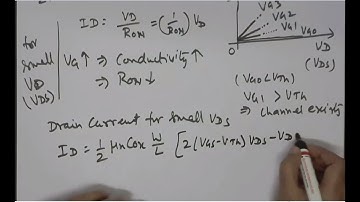 ID = VD/RON = (1/RON) VD
for small VD (VDS)
VG ↑ ⇒ Conductivity ↑
⇒ RON ↓
VG3
VG2
VG1
VG0
0
VD
(VDS)
(VG0 < VTh)
VG1 > VTh
⇒ channel exists
Drain Current for Small VDS
ID = 1/2 μnCox W/L [2(VGS-VTh) VDS - VD